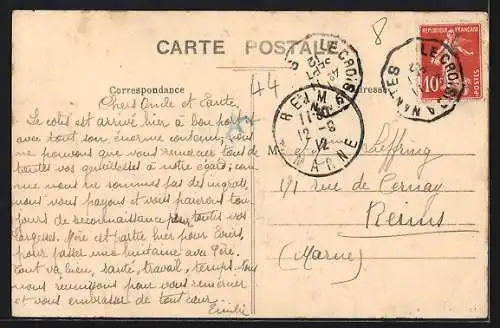 CARTE POSTALE
8
44
Correspondance
Adresse
Chers Oncle et Tante,
Le colis est arrivé hier à bon port
avec son énorme contenu, nous
ne pouvons que vous remercier tous de
toutes vos gentillesses à notre égard; com
me nous ne sommes pas des ingrats
nous vous payons et vous paierons tou
jours de reconnaissance pour toutes vos
largesses. Mère est partie hier pour
pour passer une huitaine avec Père.
Tout va bien, santé, travail, temps. Nous
nous réunissons pour vous remercier
et vous embrasser de tout cœur.
Emile
M
191 rue de Cernay
Reims
(Marne)
REIMS
11 30
12 - 9
12
MARNE
LE CROISIC A NANTES
LE CROISIC
SEPT
12
REPUBLIQUE FRANÇAISE
10
POSTES